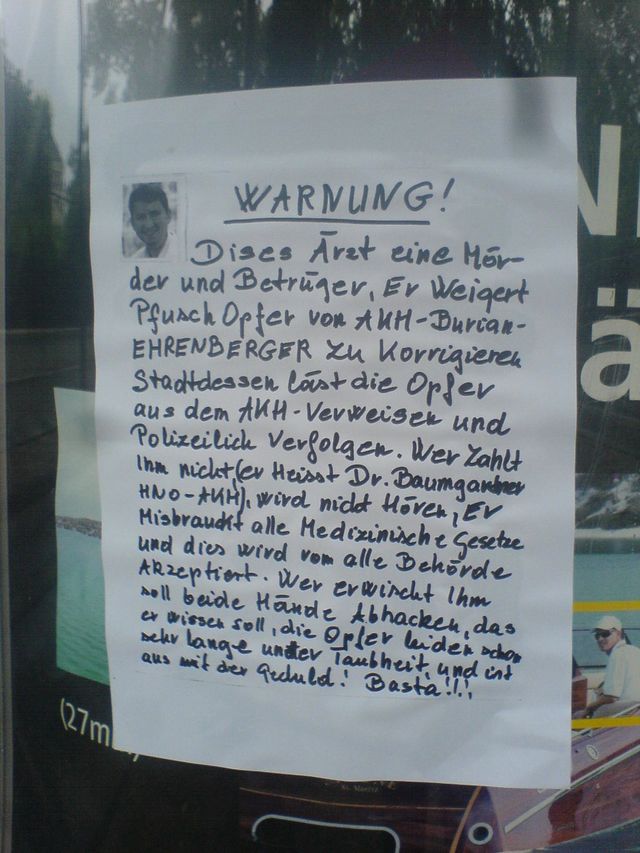 WARNUNG!
Dises Ärzt eine Mör-
der und Betrüger, Er Weigert
Pfusch Opfer von AKH-Burian-
EHRENBERGER zu Korrigieren
Stadtdessen läst die Opfer
aus dem AKH-Verweisen und
Polizeilich Verfolgen. Wer Zahlt
Ihm nicht, (er Heisst Dr. Baumgardner
HNO-AKH), wird nicht Hören, Er
Misbraukt alle Medizinische Gesetze
und dies wird vom alle Behörde
Akzeptiert. Wer erwischt Ihm
soll beide Hände Abhacken, das
er wissen soll, die Opfer leiden schon
sehr lange unter Taubheit, und ist
aus mit der Geduld! Basta!!!
N
ä
(27m